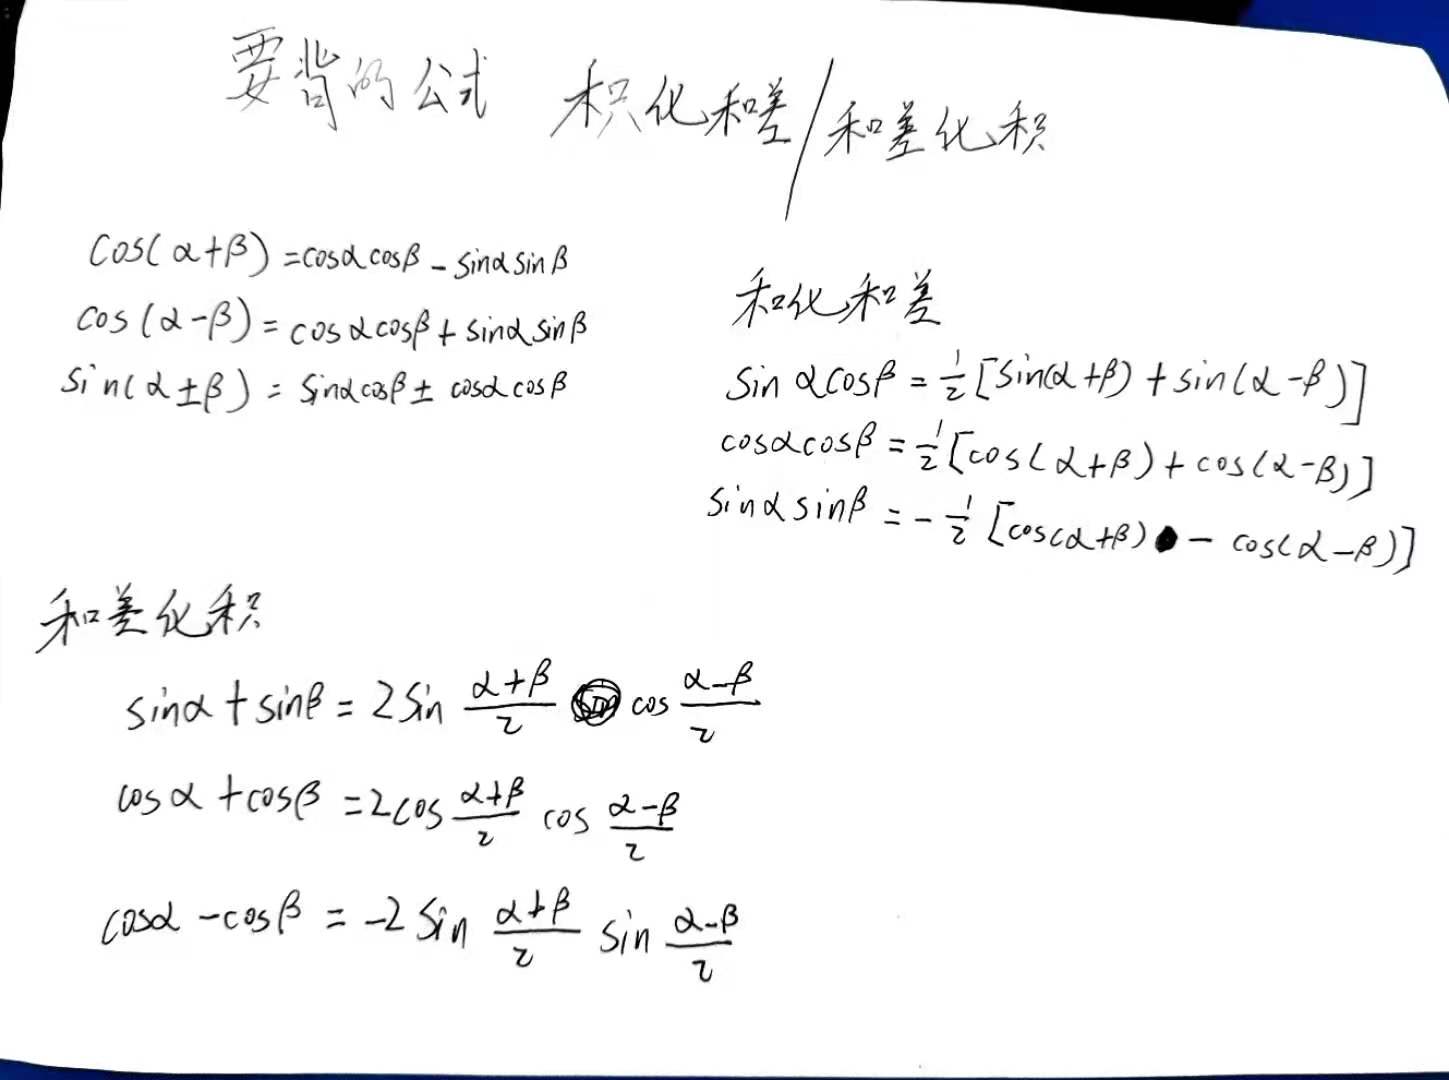 要背的公式 积化和差/和差化积
cos(α+β)=cosαcosβ-sinαsinβ
cos(α-β)=cosαcosβ+sinαsinβ
sin(α±β)=sinαcosβ±cosαcosβ
和化和差
sinαcosβ=1/2[sin(α+β)+sin(α-β)]
cosαcosβ=1/2[cos(α+β)+cos(α-β)]
sinαsinβ=-1/2[cos(α+β)-cos(α-β)]
和差化积
sinα+sinβ=2sin (α+β)/2 cos (α-β)/2
cosα+cosβ=2cos (α+β)/2 cos (α-β)/2
cosα-cosβ=-2sin (α+β)/2 sin (α-β)/2